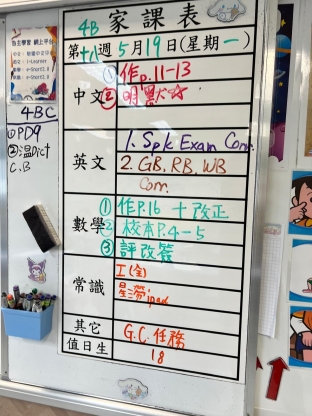 4B 家課表
第十八週 5月19日(星期一)
中文
① 作p.11-13
② 明默☆
英文
1. Spk Exam Corr.
2. GB, RB, WB
Corr.
數學
① 作P.16 十改正
② 校本P.4-5
③ 評改簽
常識
工(全)
星滯ipad
其它
G.C.任務
值日生
18
自主學習 網上平台
4BC
①PD9
②温Dict
C.B